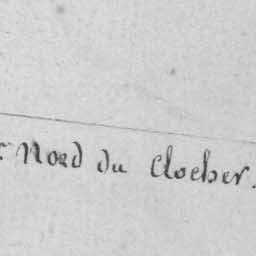 Nord du Clocher.